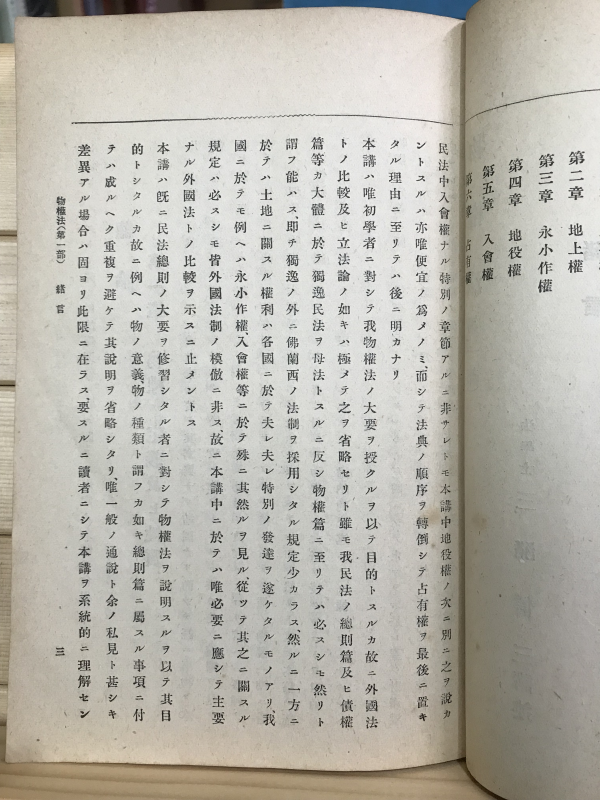 第二章　地上權
第三章　永小作權
第四章　地役權
第五章　入會權
第六章　占有權
民法中入會權ナル特別ノ章節アルニ非サレトモ本講中地役權ノ次ニ別ニ之ヲ說カ
ントスルハ亦唯便宜ノ爲メノミ、而シテ法典ノ順序ヲ轉倒シテ占有權ヲ最後ニ置キ
タル理由ニ至リテハ後ニ明カナリ
本講ハ唯初學者ニ對シテ我物權法ノ大要ヲ授クルヲ以テ目的トスルカ故ニ外國法
トノ比較及ヒ立法論ノ如キハ極メテ之ヲ省略セリト雖モ我民法ノ總則篇及ヒ債權
篇等カ大體ニ於テ獨逸民法ヲ母法トスルニ反シ物權篇ニ至リテハ必スシモ然リト
謂フ能ハス、卽チ獨逸ノ外ニ佛蘭西ノ法制ヲ採用シタル規定少カラス、然ルニ一方ニ
於テハ土地ニ關スル權利ハ各國ニ於テ夫レ夫レ特別ノ發達ヲ遂ケタルモノアリ、我
國ニ於テモ例ヘハ永小作權、入會權等ニ於テ殊ニ其然ルヲ見ル、從ツテ其之ニ關スル
規定ハ必スシモ皆外國法制ノ模倣ニ非ス故ニ本講中ニ於テハ唯必要ニ應シテ主要
ナル外國法トノ比較ヲ示スニ止メントス
本講ハ旣ニ民法總則ノ大要ヲ修習シタル者ニ對シテ物權法ヲ說明スルヲ以テ其目
的トシタルカ故ニ例ヘハ物ノ意義、物ノ種類ト謂フカ如キ總則篇ニ屬スル事項ニ付
テハ成ルヘク重複ヲ避ケテ其說明ヲ省略シタリ、唯一般ノ通說ト余ノ私見ト甚シキ
差異アル場合ハ固ヨリ此限ニ在ラス、要スルニ讀者ニシテ本講ヲ系統的ニ理解セン
物權法(第一部)　緖言
三